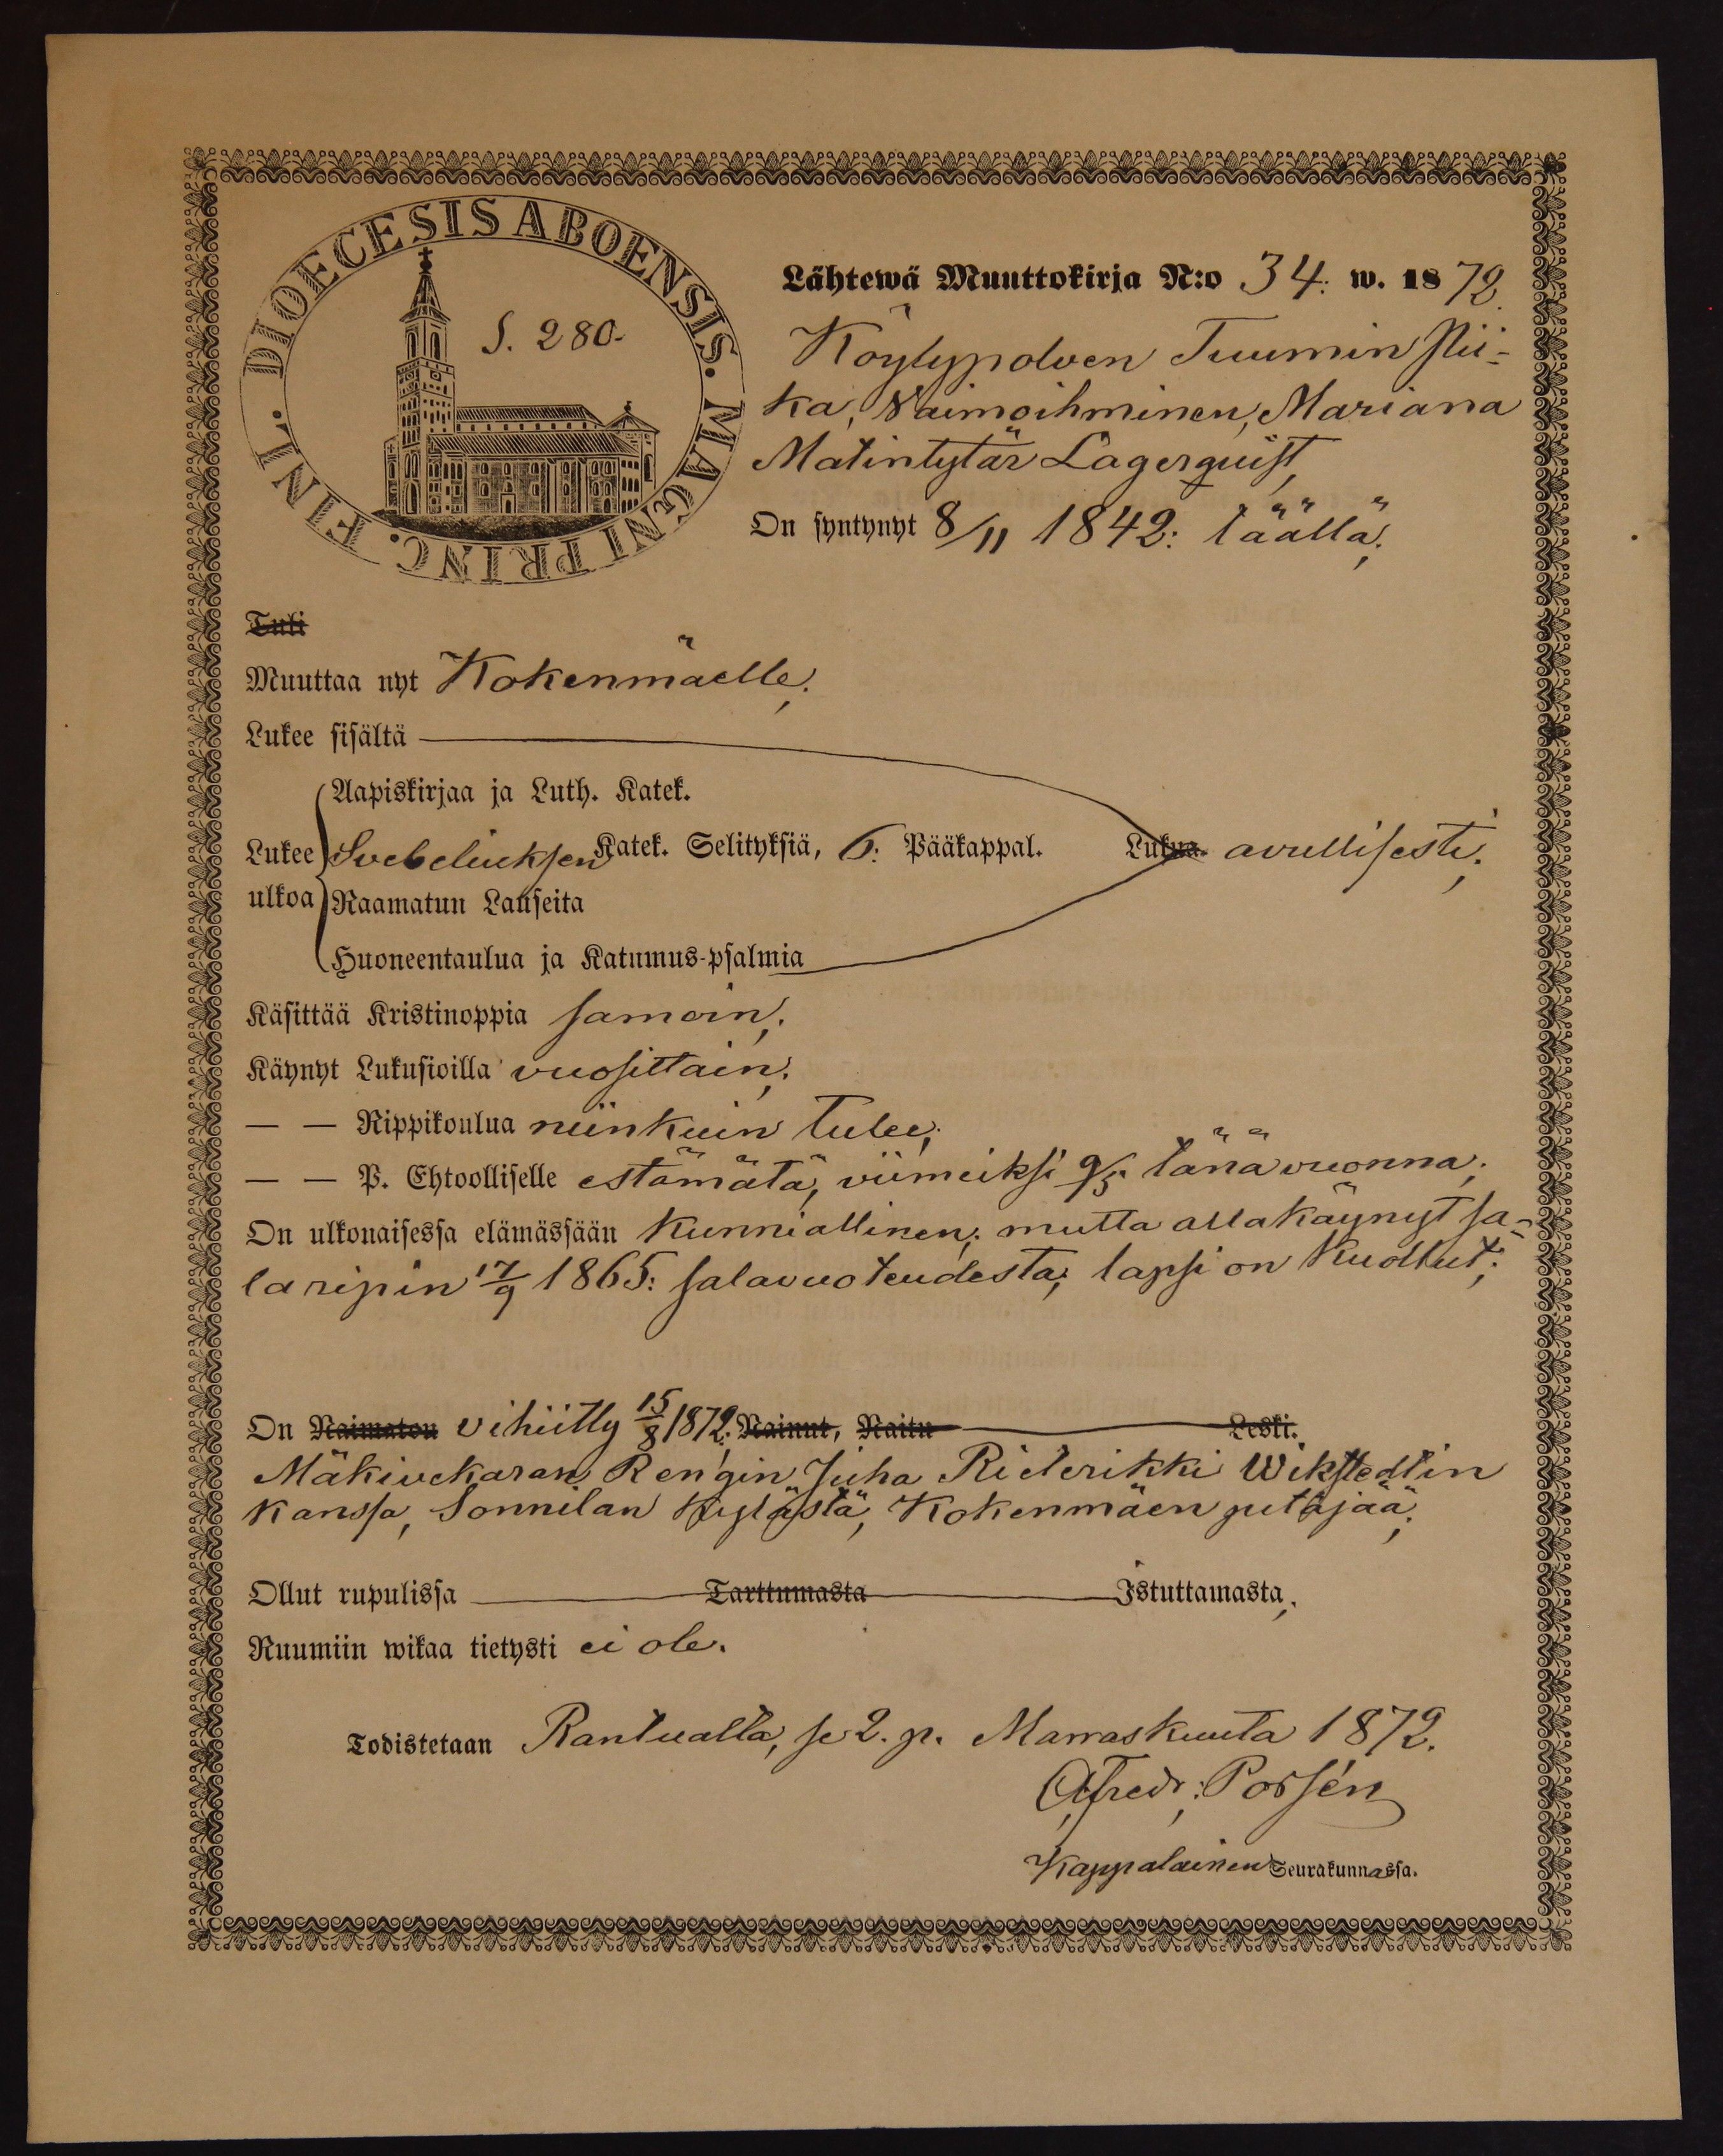 DIOECESIS ABOENSIS. MAGNI PRINC. FINL.
S. 280.
Lähtewä Muuttokirja N:o 34. w. 1872.
Köylypolven Tuumin Pii-
ka, Vaimoihminen, Mariana
Matintytär Lagerquist,
On syntynyt 8/11 1842: täällä;
Tuli
Muuttaa nyt Kokenmäelle;
Lukee sisältä
Aapiskirjaa ja Luth. Katek.
Lukee Svebeliuksen Katek. Selityksiä, 6: Pääkappal. Lukua. avullisesti;
ulkoa Raamatun Lauseita
Huoneentaulua ja Katumus-psalmia
Käsittää Kristinoppia samoin;
Käynyt Lukusioilla vuosittain;
— — Rippikoulua niinkuin tulee;
— — P. Ehtoolliselle estämätä, viimeiksi 9/5. tänä vuonna;
On ulkonaisessa elämässään kunniallinen; mutta allakäynyt sa-
laripin 17/9 1865: salavuoteudesta; lapsi on kuollut;
On Naimaton vihiitty 15/8 1872; Nainut, Naitu Leski.
Mäkivekaran Rengin Juha Riderikki Wikstedtin
kanssa, Sonnilan kylästä, Kokenmäen pitäjää;
Ollut rupulissa Tarttumasta Istuttamasta;
Ruumiin wikaa tietysti ei ole.
Todistetaan Rantualla, se 2. p. Marraskuuta 1872.
Alfredr: Porsén
Kappalainen Seurakunnassa.